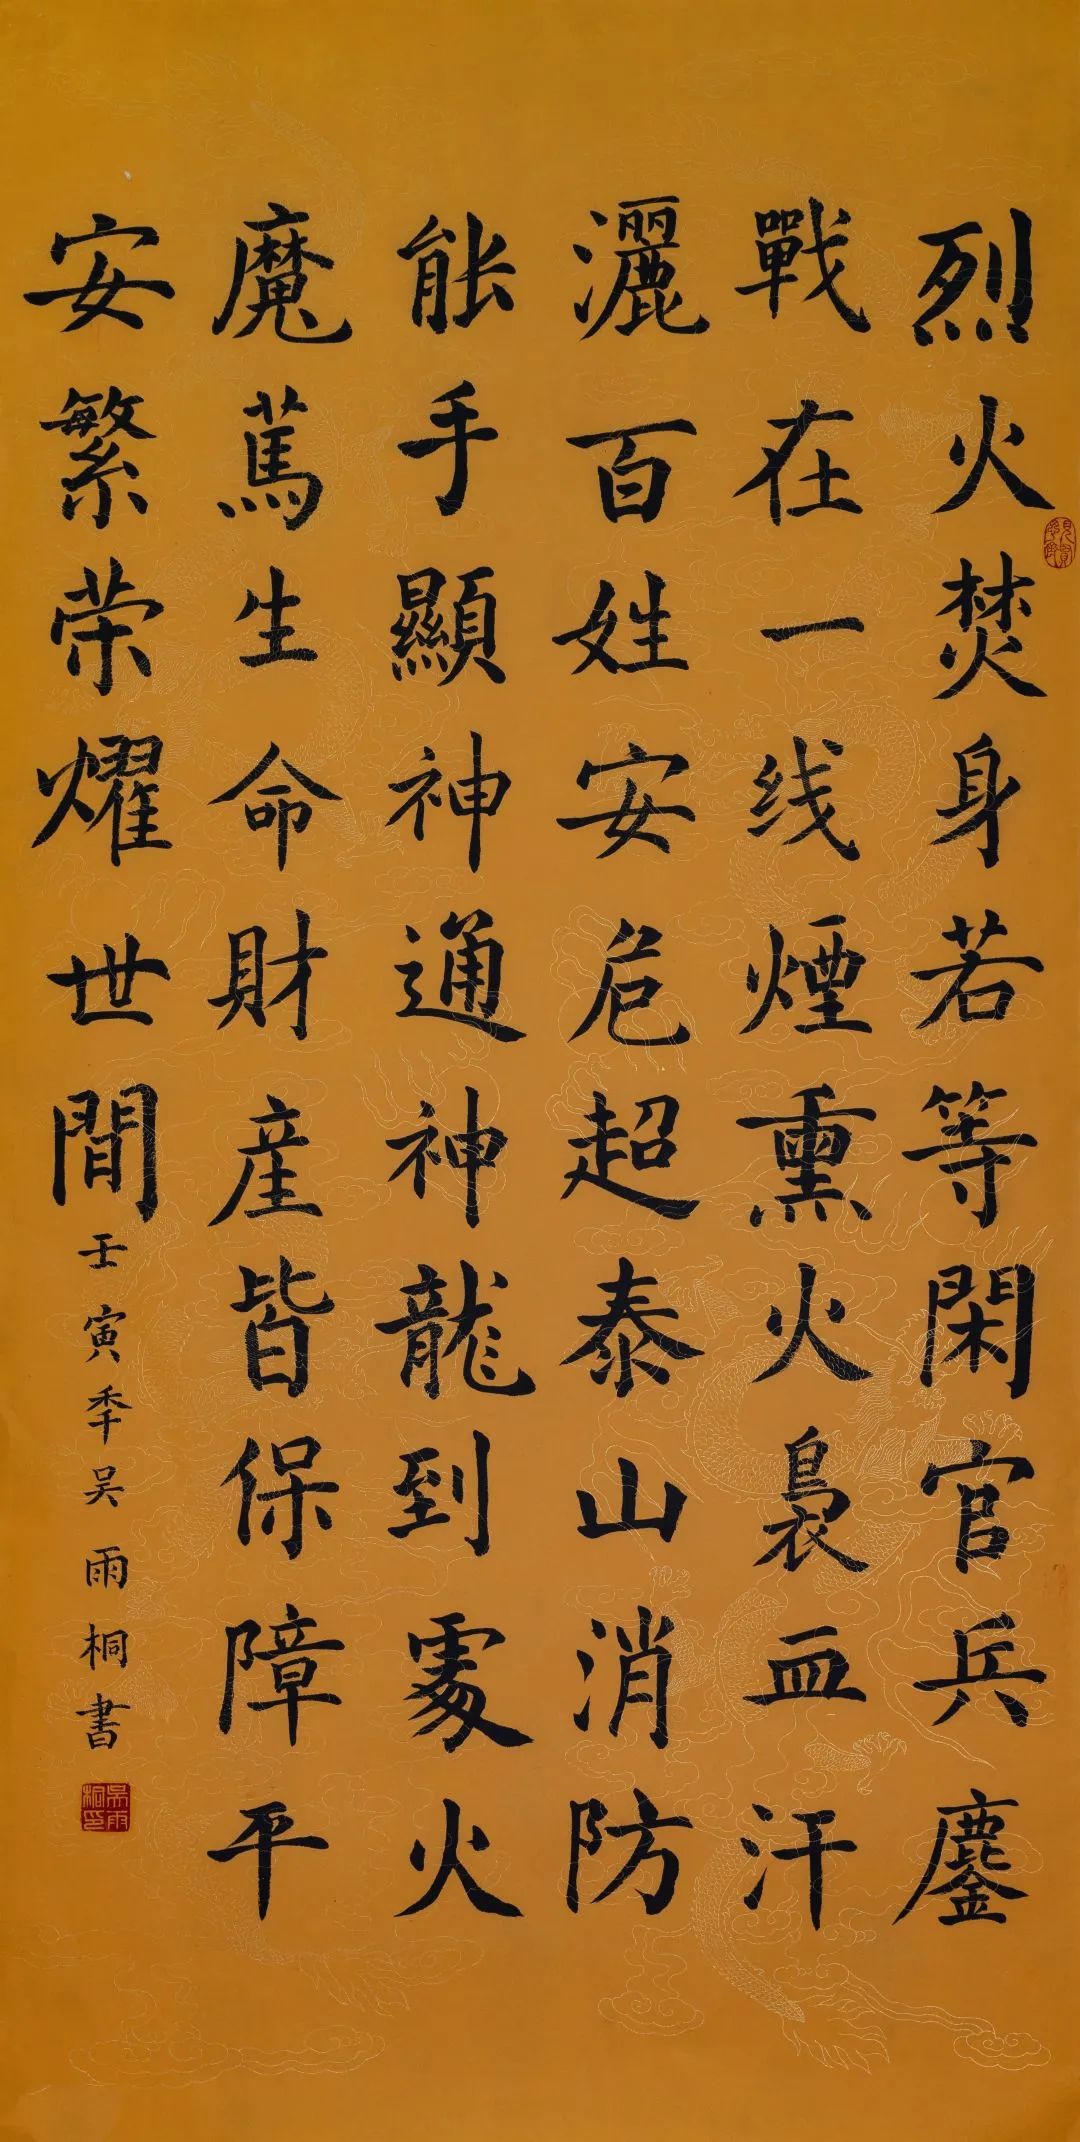 烈火焚身若等閑官兵鏖
戰在一线煙熏火裊血汗
灑百姓安危超泰山消防
能手顯神通神龍到處火
魔蔫生命財産皆保障平
安繁荣耀世間
壬寅秊吴雨桐書
吴雨桐印